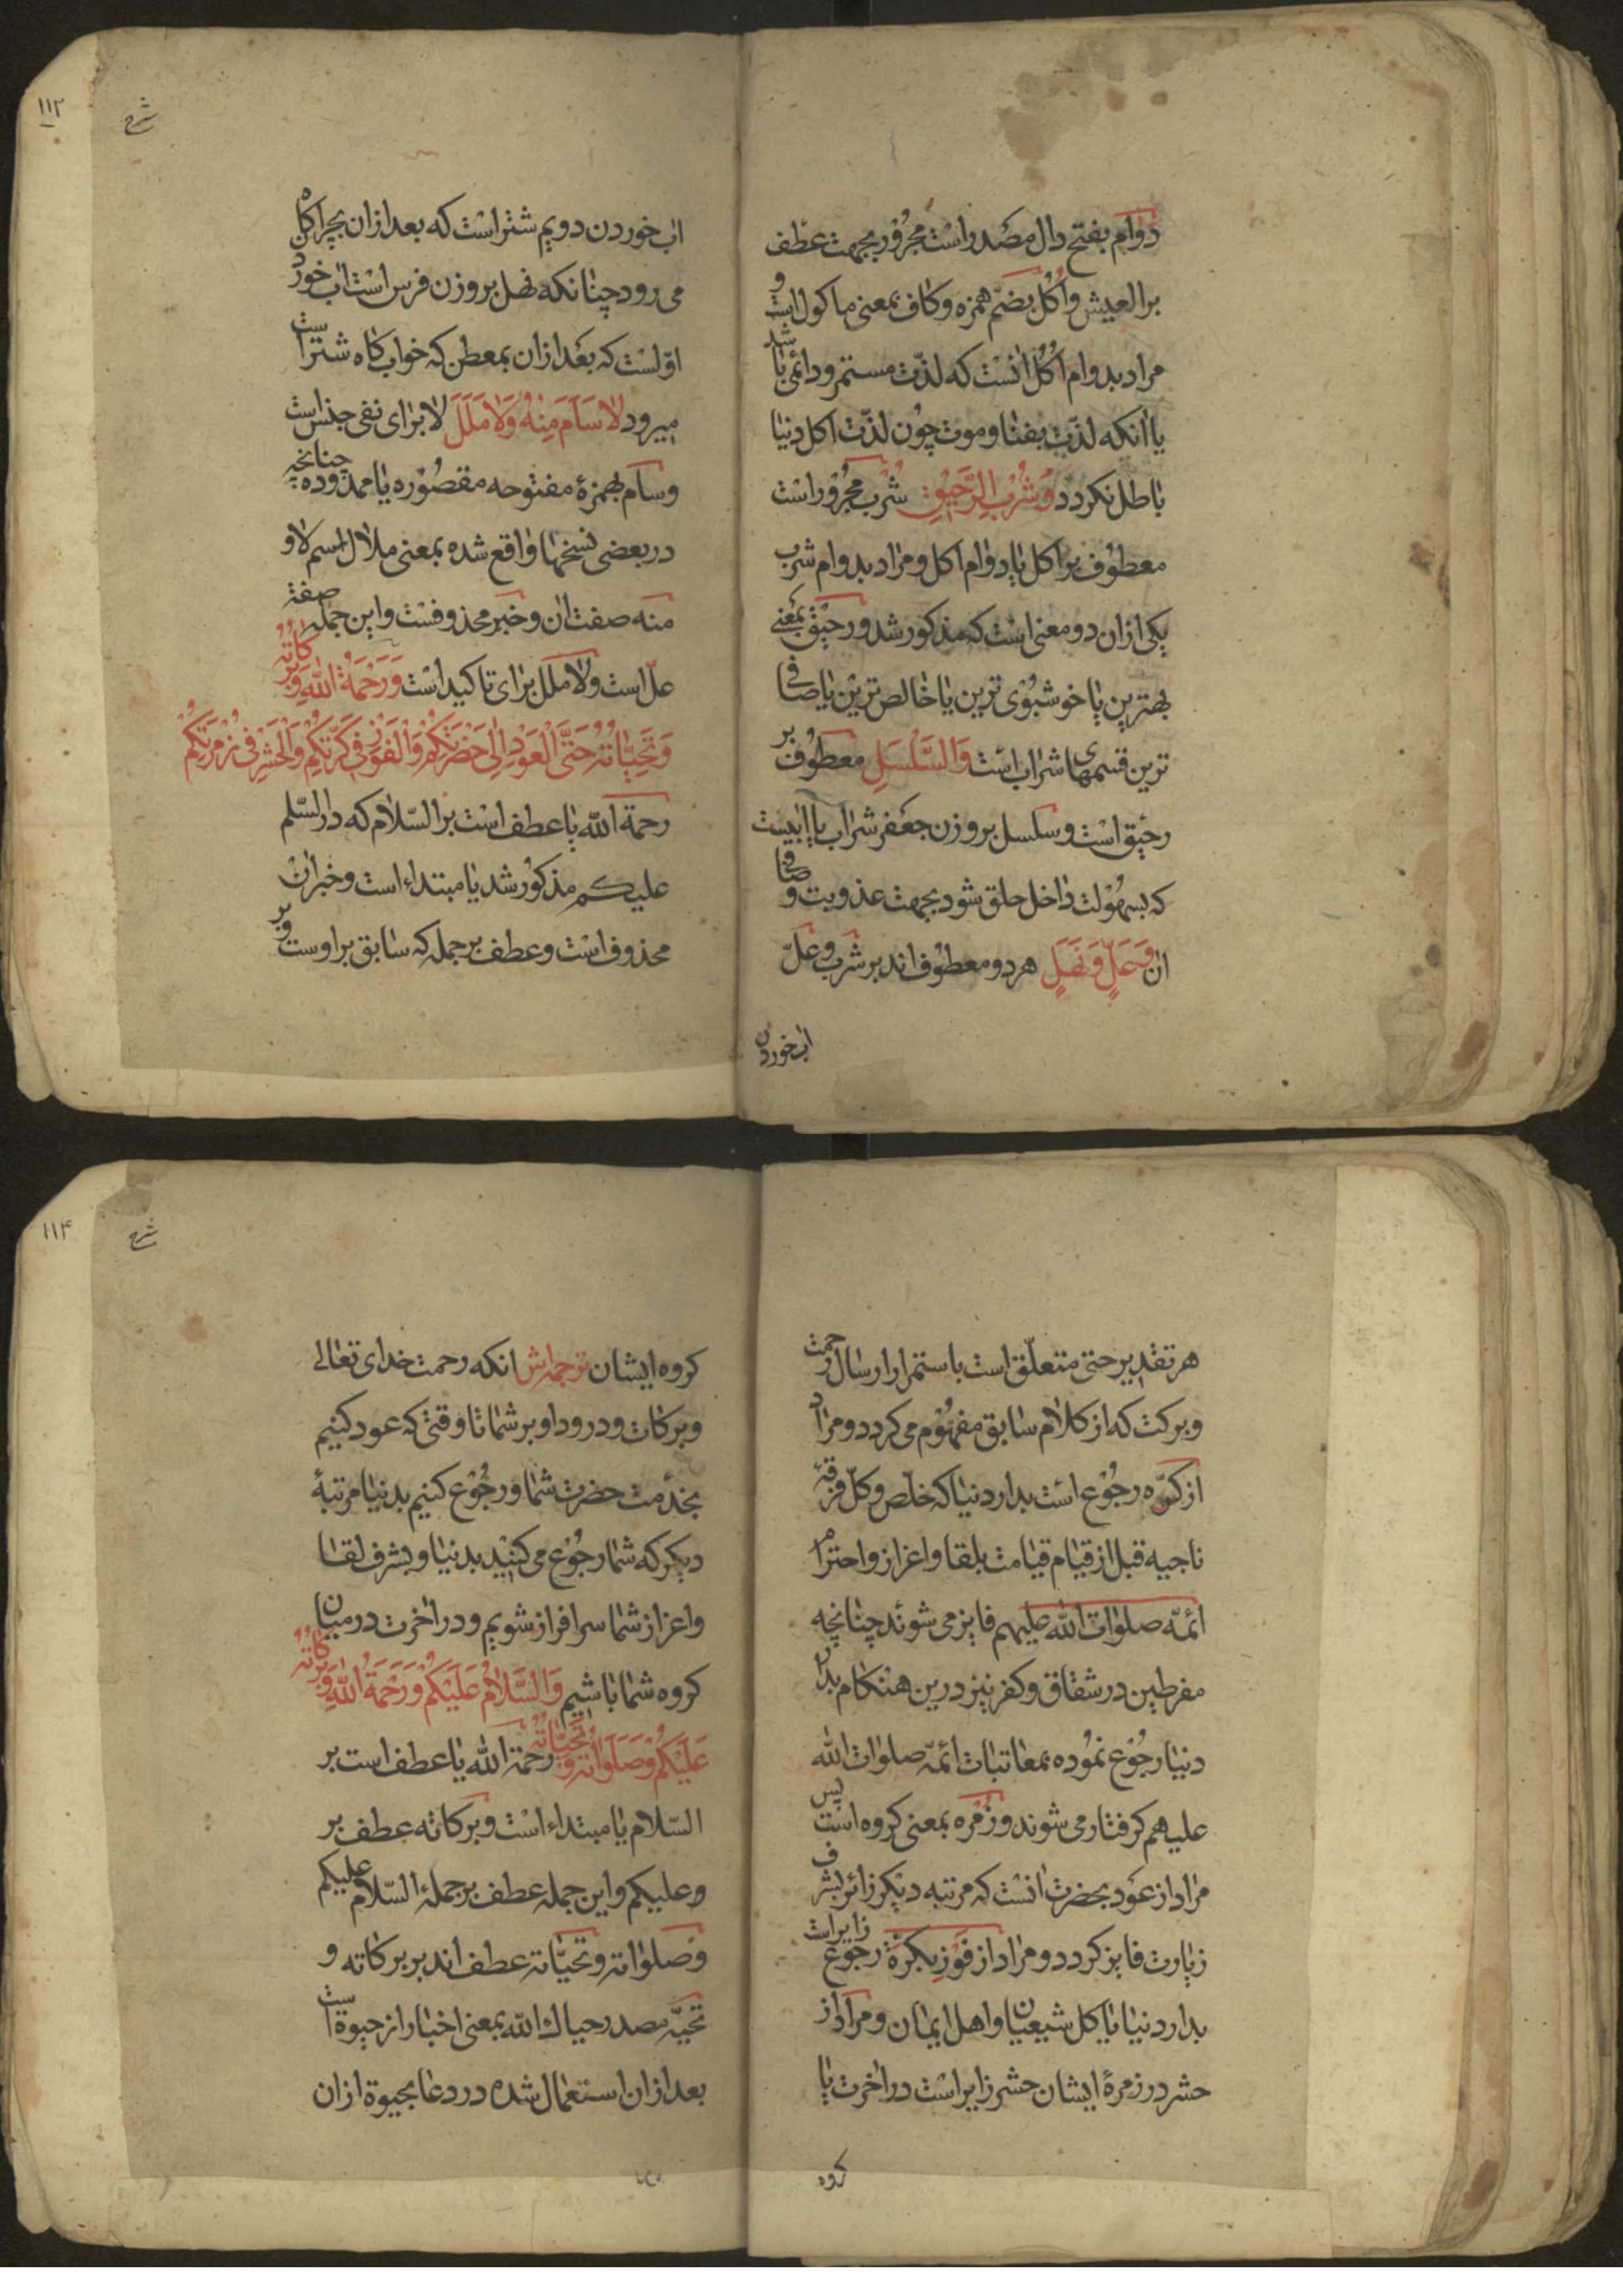 دوام بفتح دال مصدر است مجرور بجهت عطف
بر العیش و اُکُل بضم همزه و کاف بمعنی ماکول است و
مراد بدوام اُکُل انست که لذّت مستمر و دائمی باشد
یا انکه لذّت بفنا و موت چون لذّت اکل دنیا
باطل نکردد وَشُرْبِ الرَّحِیْقِ شُرب مجرور است
معطوف بر اکل یا دوام اکل و مراد بدوام شرب
یکی ازان دو معنی است که مذکور شد و رحیق بمعنی
بهترین یا خوشبوی ترین یا خالص ترین یا صافی
ترین قسمهای شراب است وَالسَّلْسَلِ معطوف بر
رحیق است و سلسل بر وزن جعفر شراب یا ابیست
که بسهولت داخل حلق شود بجهت عذوبت و صافی
ان وَعَلٍّ وَنَهَلٍ هر دو معطوف اند بر شرب و علّ
اب خوردن
۱۱۲
شرح
اب خوردن دویم شتر است که بعد ازان بچراکاه
می رود چنانکه نهل بر وزن فرس است اب خوردن
اوّلست که بعد ازان بمعطن که خوابکاه شتر است
میرود لاسَأَمَ مِنْهُ وَلامَلَلَ لا برای نفی جنس است
و سأم بهمزهٔ مفتوحه مقصوره یا ممدوده چنانچه
در بعضی نسخها واقع شده بمعنی ملال اسم لا و
منه صفت ان و خبر محذوفست و این جمله صفة
علّ است و لا ملل برای تاکید است وَرَحْمَةُ اللهِ وَبَرَکاتُهُ
وَتَحِیّاتُهُ حَتَّی الْعَوْدِ اِلی حَضْرَتِکُمْ وَالْفَوْزِ فِی کَرَّتِکُمْ وَالْحَشْرِ فِی زُمْرَتِکُمْ
رحمة الله یا عطف است بر السّلام که در السّلم
علیکم مذکور شد یا مبتداء است و خبر ان
محذوف است و عطف بر جمله که سابق بر اوست و بر
هر تقدیر حتی متعلّق است باستمرار ارسال رحمت
و برکت که از کلام سابق مفهوم می کردد و مراد
از کرّه رجوع است بدار دنیا که خلّص و کلّ فرقهٔ
ناجیه قبل از قیام قیامت بلقا و اعزاز و احترام
ائمّه صلوات الله علیهم فایز می شوند چنانچه
مفرطین در شقاق و کفر نیز درین هنکام بدار
دنیا رجوع نموده بمعاتبات ائمّه صلوات الله
علیهم کرفتار می شوند و زُمره بمعنی کروه است پس
مراد از عود بحضرت انست که مرتبه دیکر زائر بشرف
زیارت فایز کردد و مراد از فوز بکرّة رجوع زایر است
بدار دنیا با کل شیعیان و اهل ایمان و مراد از
حشر در زمرهٔ ایشان حشر زایر است در اخرت با
کروه
۱۱۴
شرح
کروه ایشان ترجمه‌اش انکه رحمت خدای تعالی
و برکات و درود او بر شما تا وقتی که عود کنیم
بخدمت حضرت شما و رجوع کنیم بدنیا مرتبهٔ
دیکر که شما رجوع می کنید بدنیا و بشرف لقا
و اعزاز شما سرافراز شویم و در اخرت در میان
کروه شما باشیم وَالسَّلامُ عَلَیْکُمْ وَرَحْمَةُ اللهِ وَبَرَکاتُهُ
عَلَیْکُمْ وَصَلَواتُهُ وَتَحِیّاتُهُ رحمة الله یا عطف است بر
السّلام یا مبتداء است و برکاته عطف بر
و علیکم و این جمله عطف بر جملهٔ السّلام علیکم
و صلواته و تحیّاته عطف اند بر برکاته و
تحیّه مصدر حیاك الله بمعنی اخبار از حیوة است
بعد ازان استعمال شده در دعا بحیوة ازان